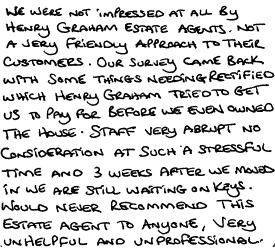 WE WERE NOT IMPRESSED AT ALL BY
HENRY GRAHAM ESTATE AGENTS. NOT
A VERY FRIENDLY APPROACH TO THEIR
CUSTOMERS. OUR SURVEY CAME BACK
WITH SOME THINGS NEEDING RECTIFIED
WHICH HENRY GRAHAM TRIED TO GET
US TO PAY FOR BEFORE WE EVEN OWNED
THE HOUSE. STAFF VERY ABRUPT NO
CONSIDERATION AT SUCH A STRESSFUL
TIME AND 3 WEEKS AFTER WE MOVED
IN WE ARE STILL WAITING ON KEYS.
WOULD NEVER RECOMMEND THIS
ESTATE AGENT TO ANYONE, VERY
UNHELPFUL AND UNPROFESSIONAL.